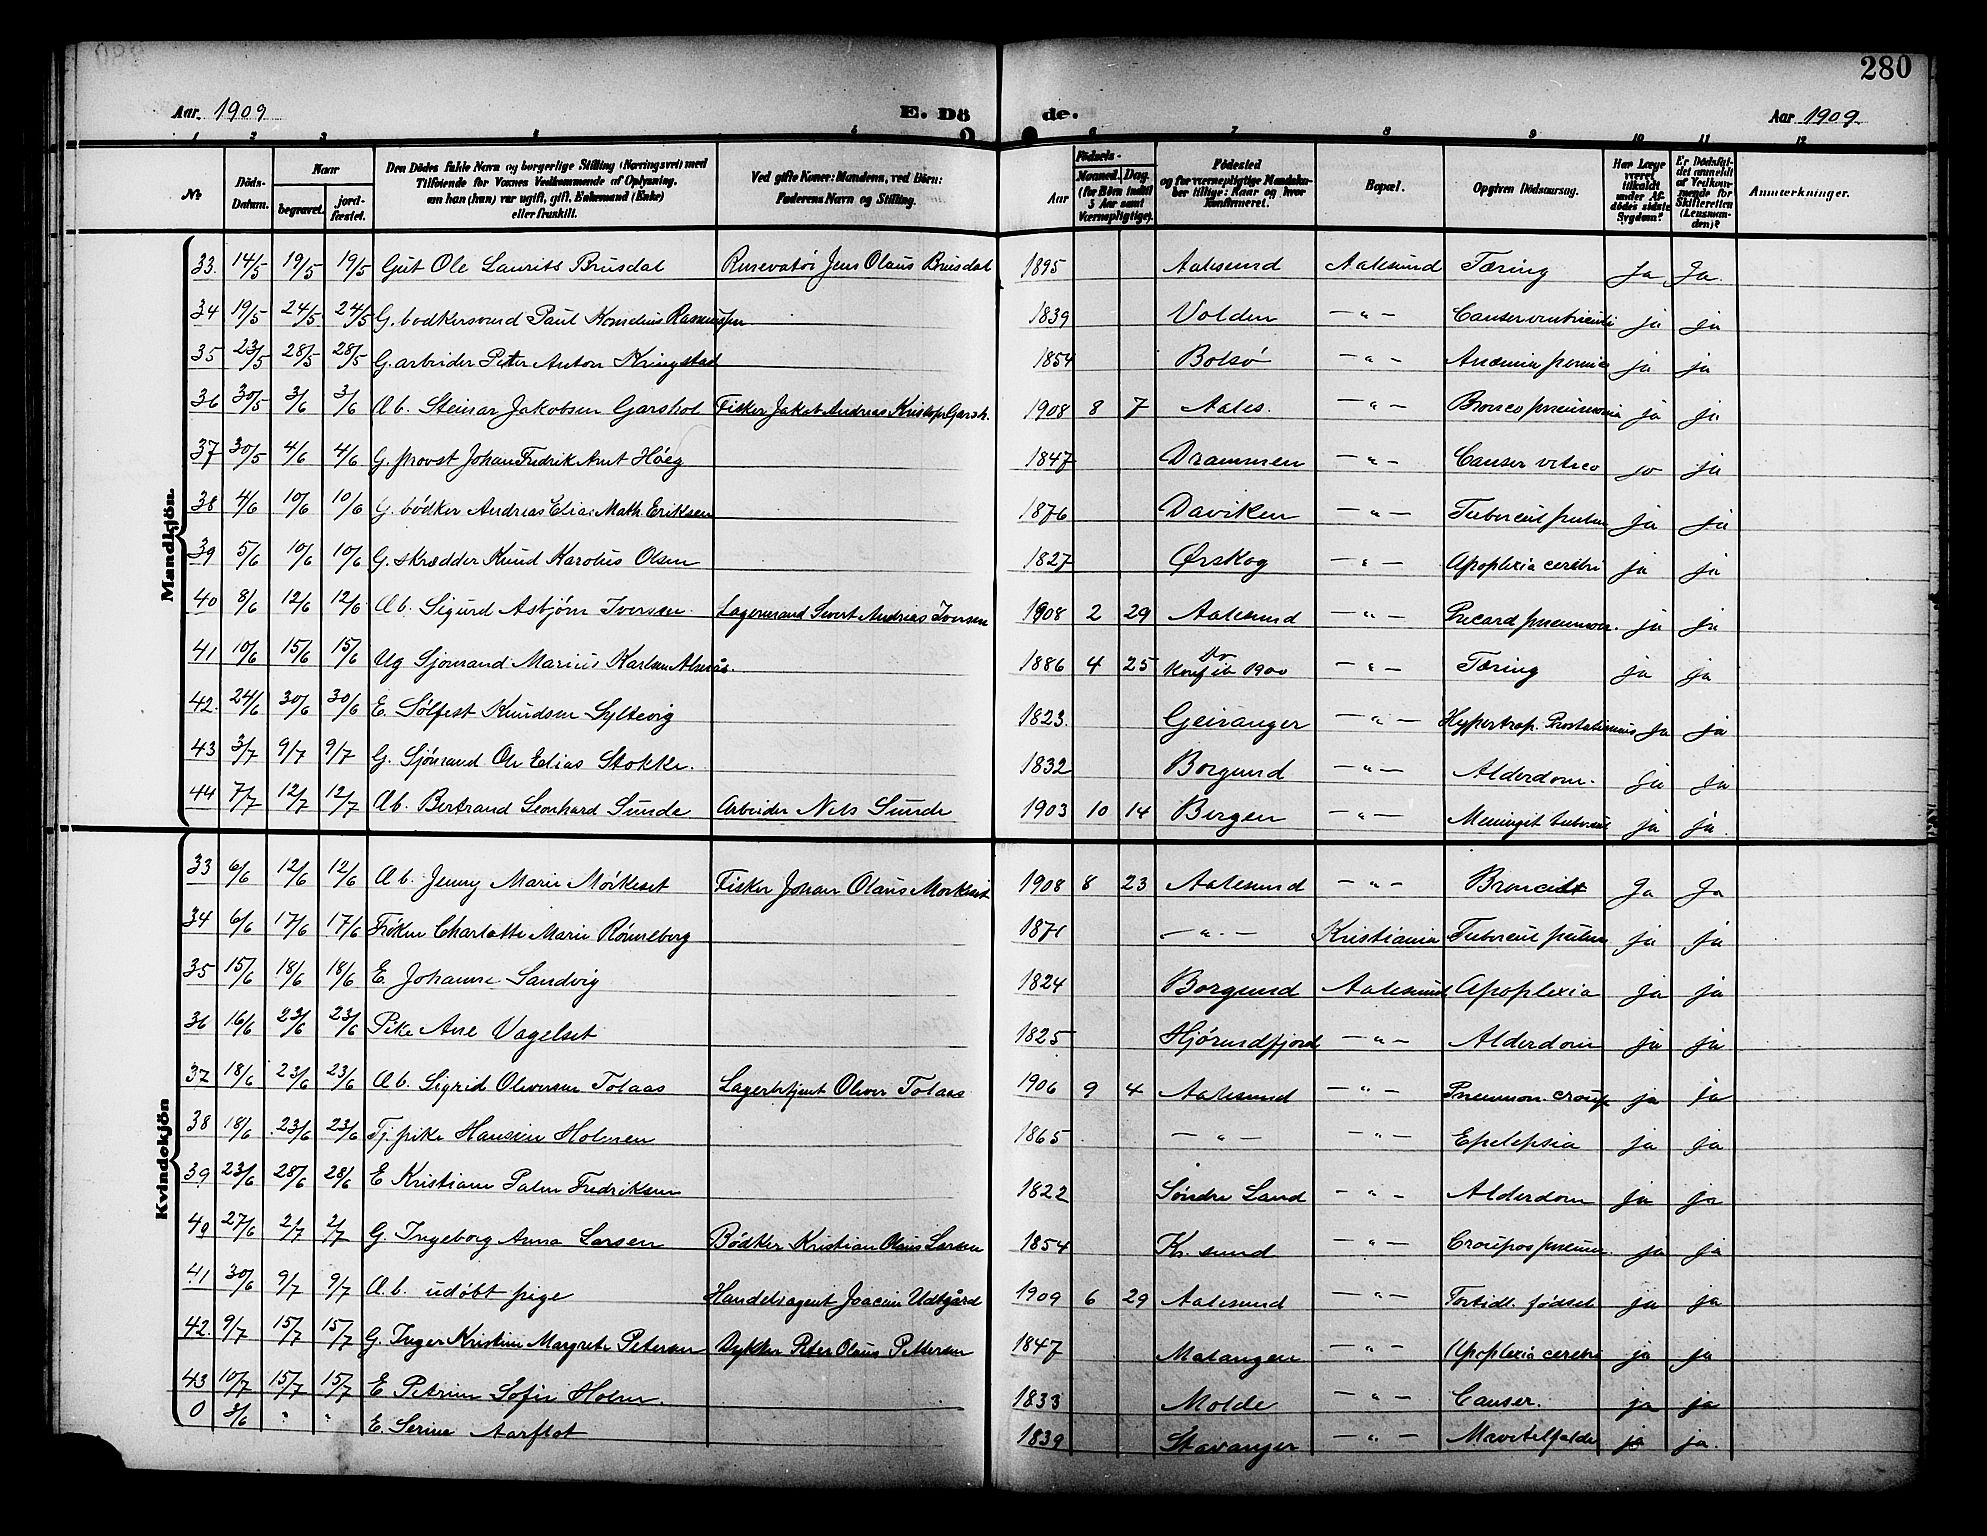 280
Aar 1909 E. Dö de. Aar 1909
1 2 3 5 4 6 7 8 9 10 11 12
№ Döds-Datum. Naar begravet. jordfæstet. Den Dödes fulde Navn og borgerlige Stilling (Næringsvei) med Tilföiende for Voxnes Vedkommende af Oplysning, om han (hun) var ugift, gift, Enkemand (Enke) eller fraskilt. Ved gifte Koner: Mandens, ved Börn: Faderens Navn og Stilling. Födsels- Aar Maaned. Dag. (for Börn indtil 5 Aar samt Værnepligtige). Födested og for værnepligtige Mandskaber tillige: Naar og hvor konfirmeret. Bopæl. Opgiven Dödsaarsag. Har Læge været tilkaldt under Afdödes sidste Sygdom? Er Dödsfaldet anmeldt af Vedkommende for Skifteretten (Lensmanden)? Anmærkninger.
Mandkjön.
33. 14/5 19/5 19/5 Gut Ole Laurits Brusdal Jens Olaus Brusdal 1895 Aalesund Aalesund Tæring Ja Ja.
34 19/5 24/5 24/5 G. bødkersvend Paul Kornelius Rasmussen 1839 Volden — " — Canser ventriculi ja ja
35 23/5 28/5 28/5 G. arbeider Peter Anton Kringstad 1854 Bolsø — " — Anæmia pernic ja ja
36 30/5 3/6 3/6 Æb. Steinar Jakobsen Garshol Fisker Jakob Andreas Kristofr Garsh. 1908 8 7 Aales. — " — Bronco pneumonia ja ja
37 30/5 4/6 4/6 G. provst Johan Fredrik Arnt Høeg 1847 Drammen — " — Canser ja ja
38 4/6 10/6 10/6 G. bødker Andreas Elias Math. Eriksen 1876 Daviken — " — Tubercul pulm ja ja
39 5/6 10/6 10/6 G. skrædder Knud Karolus Olsen 1827 Ørskog — " — Apoplexia cerebri ja ja
40 8/6 12/6 12/6 Æb. Sigurd Asbjørn Iversen. Lagermand Sivert Andreas Iversen 1908 2 29 Aalesund — " — pneumon. ja ja
41 10/6 15/6 15/6 Ug Sjømand Marius Karlsen Alnæs. 1886 4 25 Konf 1900 — " — Tæring ja ja
42. 24/6 30/6 30/6 E. Sølfest Knudsen Syltevig 1823. Geiranger — " — Hypertrop. Ja ja
43 3/7 9/7 9/7 G. Sjømand Ole Elias Stokke. 1832 Borgund — " — Alderdom. Ja ja
44 7/7 12/7 12/7 Æb. Bertrand Leonhard Sunde Arbeider Nils Sunde 1903 10 14 Bergen — " — Meningit tubercul ja ja.
Kvindekjön
33 6/6 12/6 12/6 Æb. Jenny Marie Mørkeset Fisker Johan Olaus Mørkeset 1908 8 23 Aalesund — " — Broncit Ja Ja
34 6/6 17/6 17/6 Frøken Charlotte Marie Rønneberg 1871 — " — Kristiania Tubercul pulm ja ja
35 15/6 18/6 18/6 E. Johanne Sandvig 1824 Borgund Aalesund Apoplexia Ja ja
36 16/6 23/6 23/6 Pike Ane Vagelset 1825 Hjørundfjord — " — Alderdom ja ja
37 18/6 23/6 23/6 Æb. Sigrid Oliversen Tolaas Lagerbetjent Oliver Tolaas 1906 9 4 Aalesund — " — Pneumon. croup ja ja
38 18/6 23/6 23/6 Tj. pike Hansine Holmen 1865 — " — — " — Epelepsia ja ja
39 23/6 28/6 28/6 E Kristiane Palm Fredriksen 1822 Søndre Land — " — Alderdom ja ja
40 27/6 2/7 2/7 G. Ingeborg Anna Larsen Bødker Kristian Olaus Larsen 1854 Kr. sund — " — Croupøs pneum. ja ja
41 30/6 9/7 9/7 Æ. b. udøbt pige Handelsagent Joacim Udtgård 1909 6 29 Aalesund — " — Fortidl. fødsel ja ja
42. 9/7 15/7 15/7 G. Inger Kristine Margrete Petersen Dykker Peter Olaus Pettersen 1847 Malangen — " — Apoplexia cerebri ja ja
43 10/7 15/7 15/7 E Petrine Sofie Holm. 1833 Molde — " — Canser. ja ja
0 3/6 " " E. Serine Aarflot 1839 Stavanger — " — ja ja.